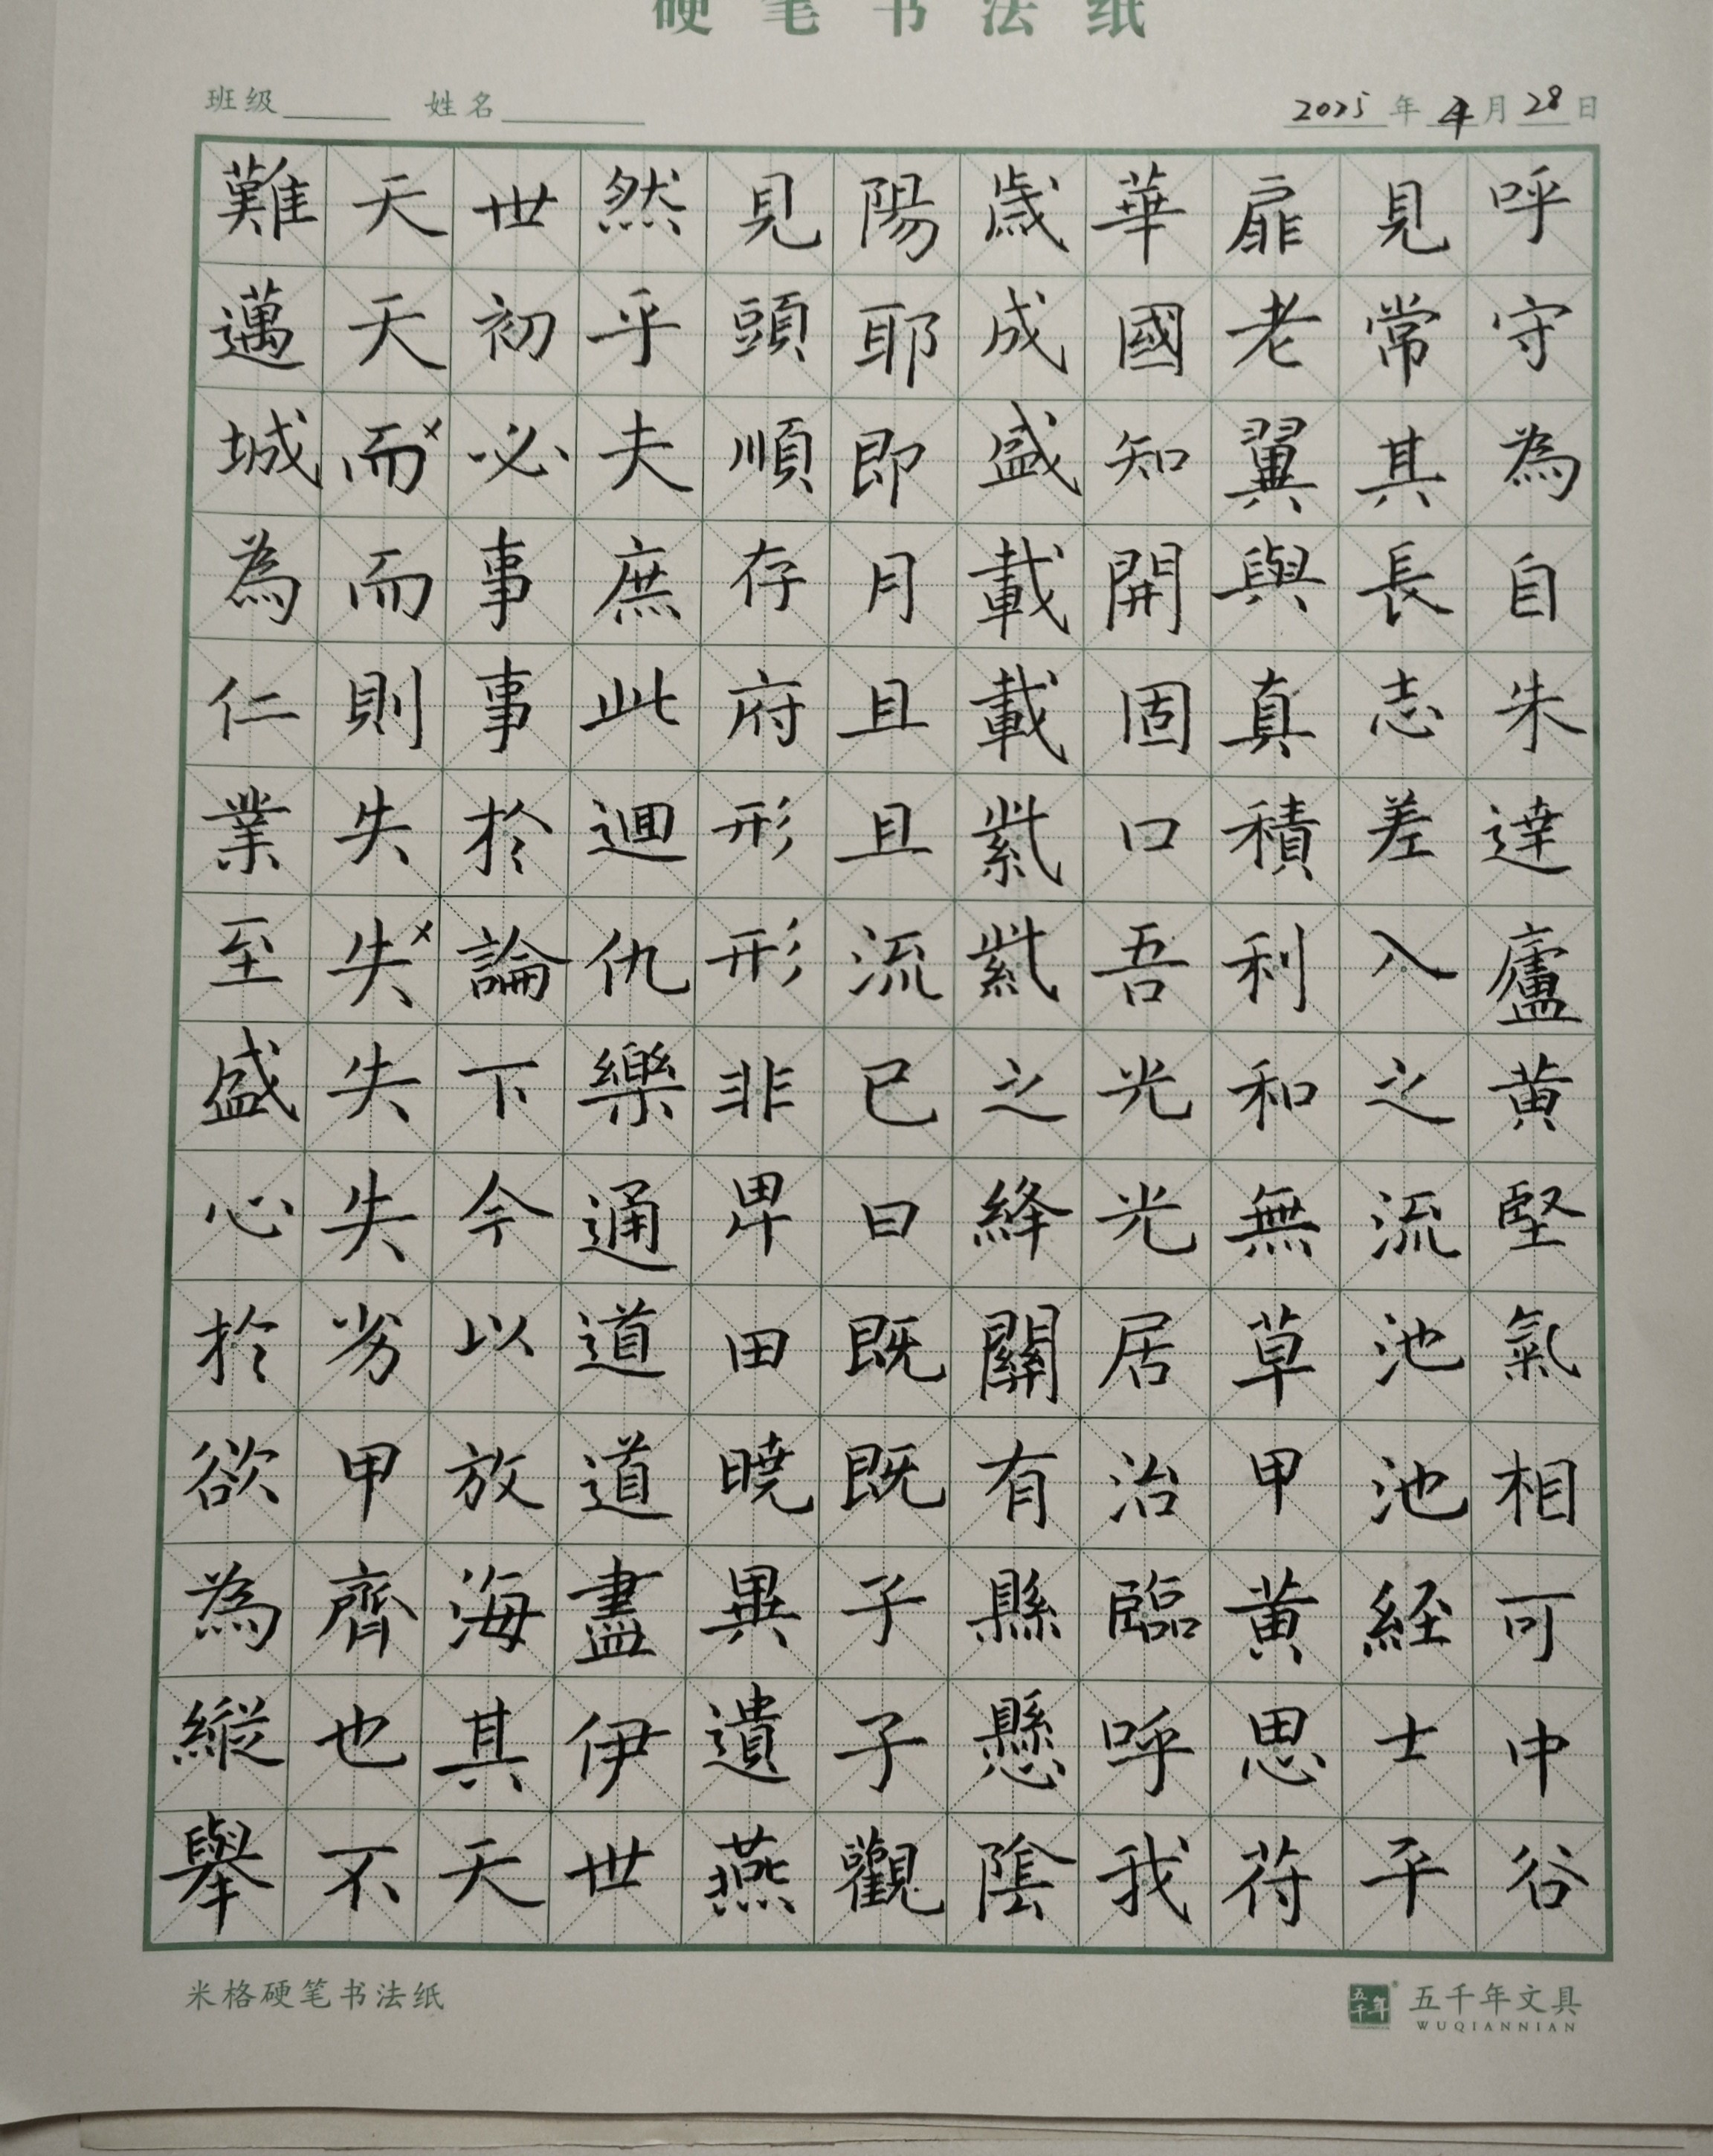 硬笔书法纸
班级 姓名 2025年4月28日
呼守為自朱達廬黄堅氣相可中谷
見常其長志差入之流池池経士平
扉老翼與真積利和無草甲黄思苻
華國知開固口吾光光居治臨呼我
歲成盛載載紫紫之絳關有縣懸陰
陽耶即月且且流已曰既既子子觀
見頭順存府形形非畀田曉異遺燕
然乎夫庶此迴仇樂通道道盡伊世
世初必事事於論下今以放海其天
天天而而則失失失失劣甲齊也不
難邁城為仁業至盛心於欲為縱舉
米格硬笔书法纸
五千年
五千年文具
WUQIANNIAN